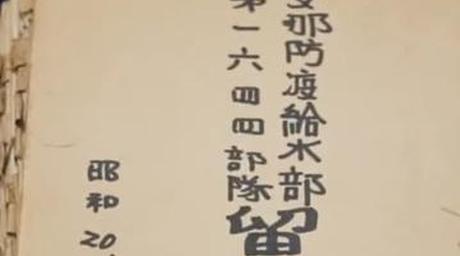 支那防疫給水部
第一六四四部隊留
昭和20